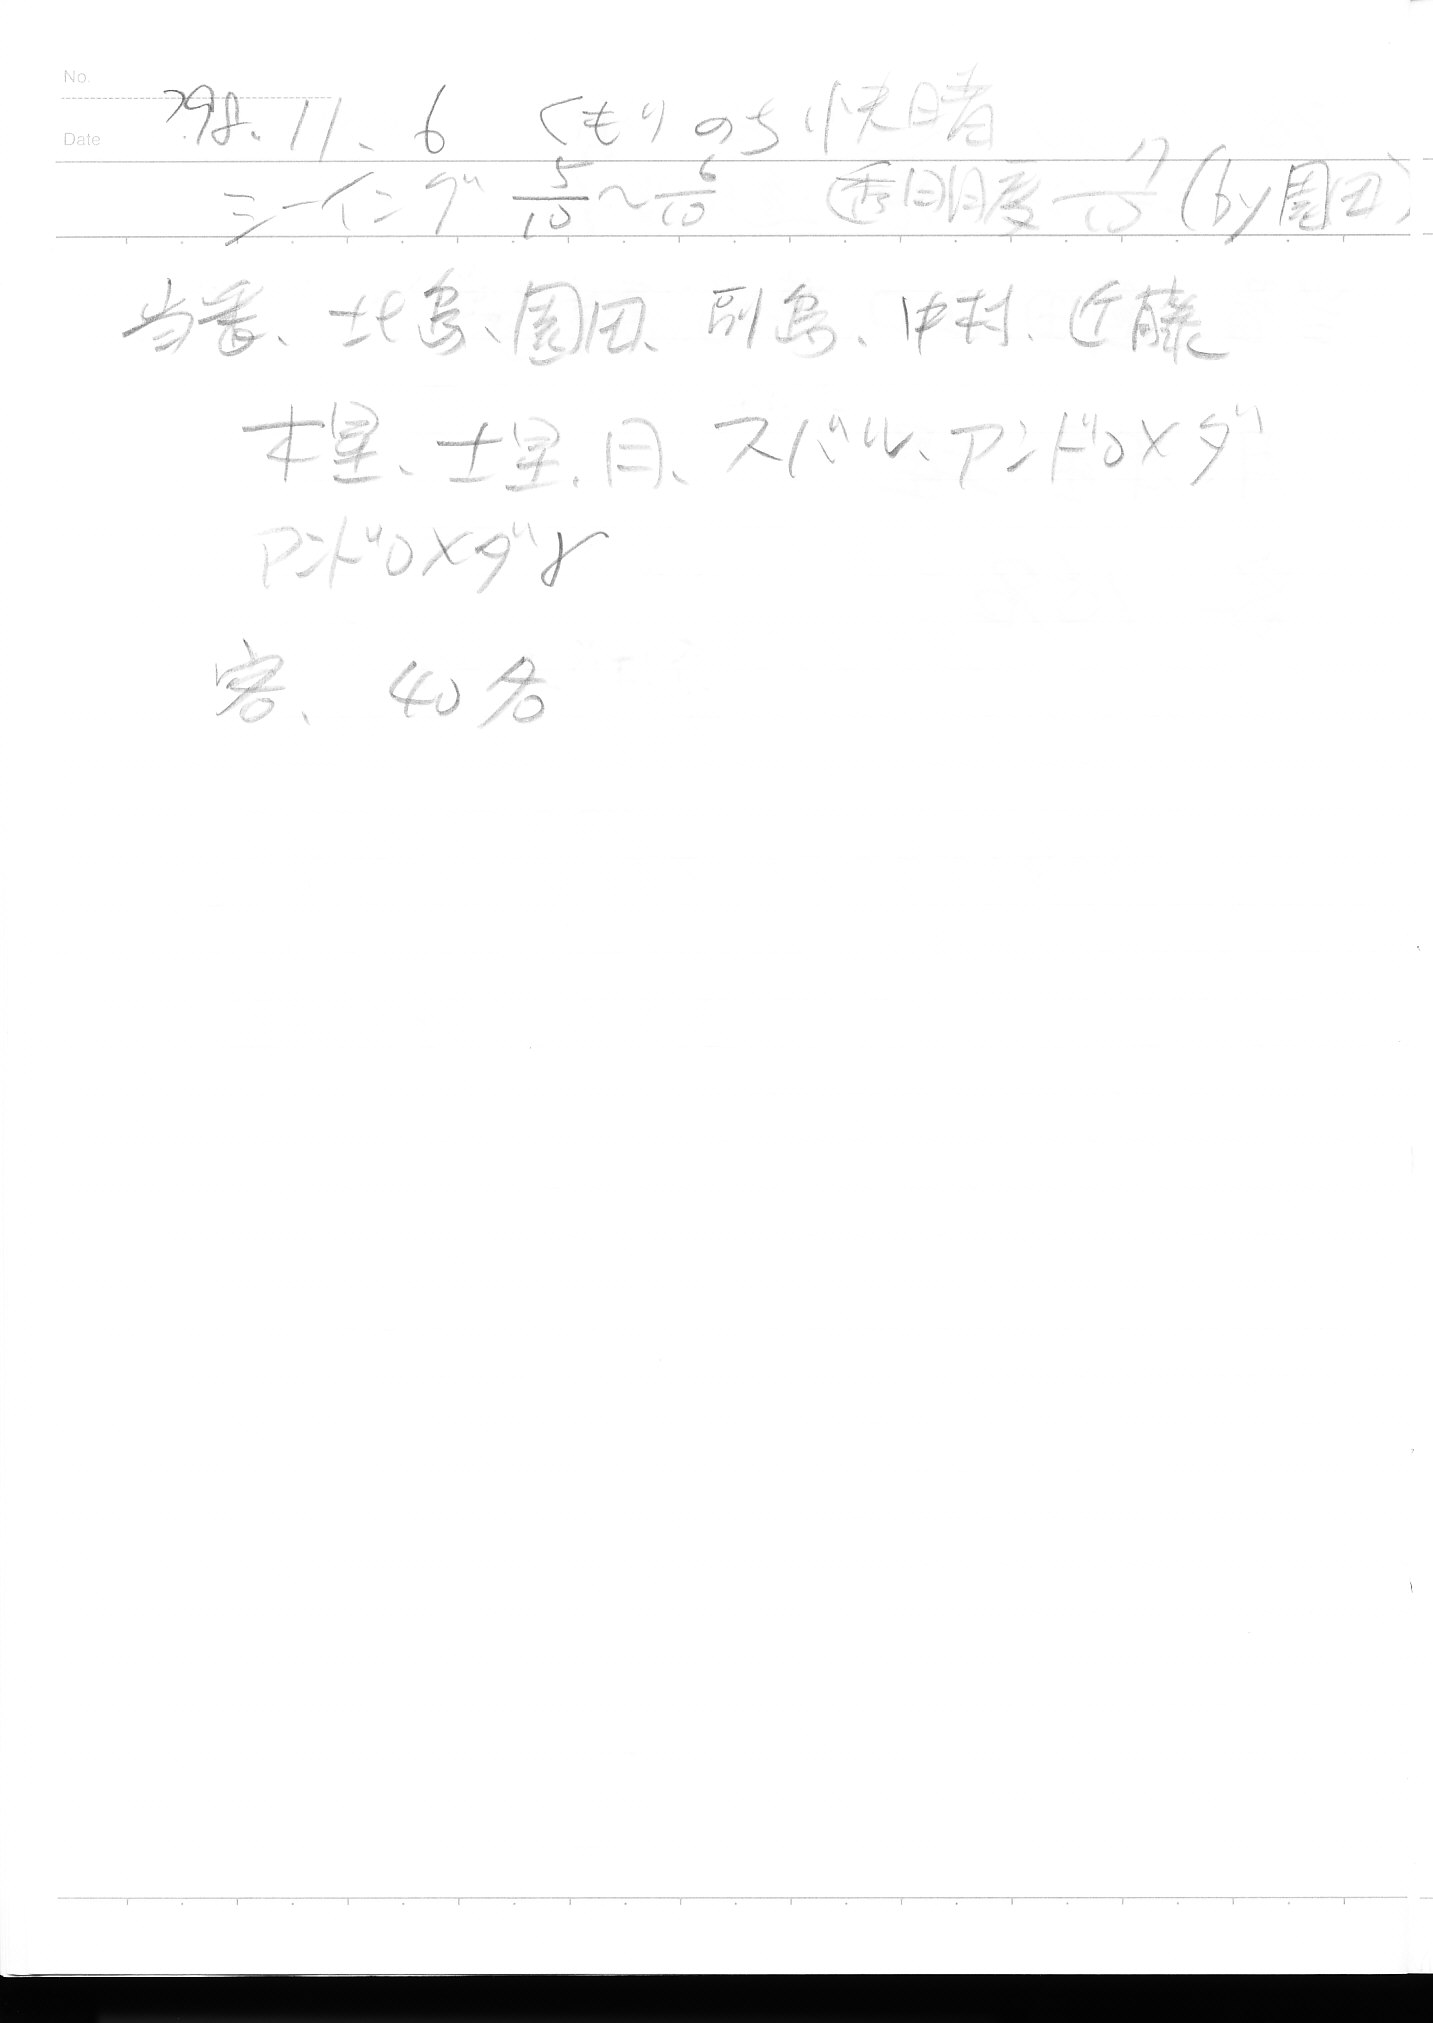 No.
Date
'98.11.6 くもりのち快晴
シーイング 5/10～6/10 透明度 7/10 (by 園田)
当番、地島、園田、副島、中村、近藤
木星、土星、月、スバル、アンドロメダ
アンドロメダγ
客、40名